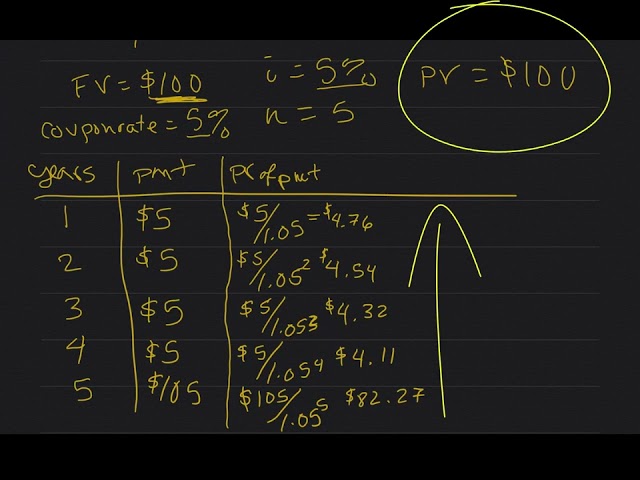 FV = $100
i = 5%
PV = $100
couponrate = 5%
n = 5
years pmt PV of pmt
1 $5 $5/1.05 = $4.76
2 $5 $5/1.05² $4.54
3 $5 $5/1.05³ $4.32
4 $5 $5/1.05⁴ $4.11
5 $105 $105/1.05⁵ $82.27